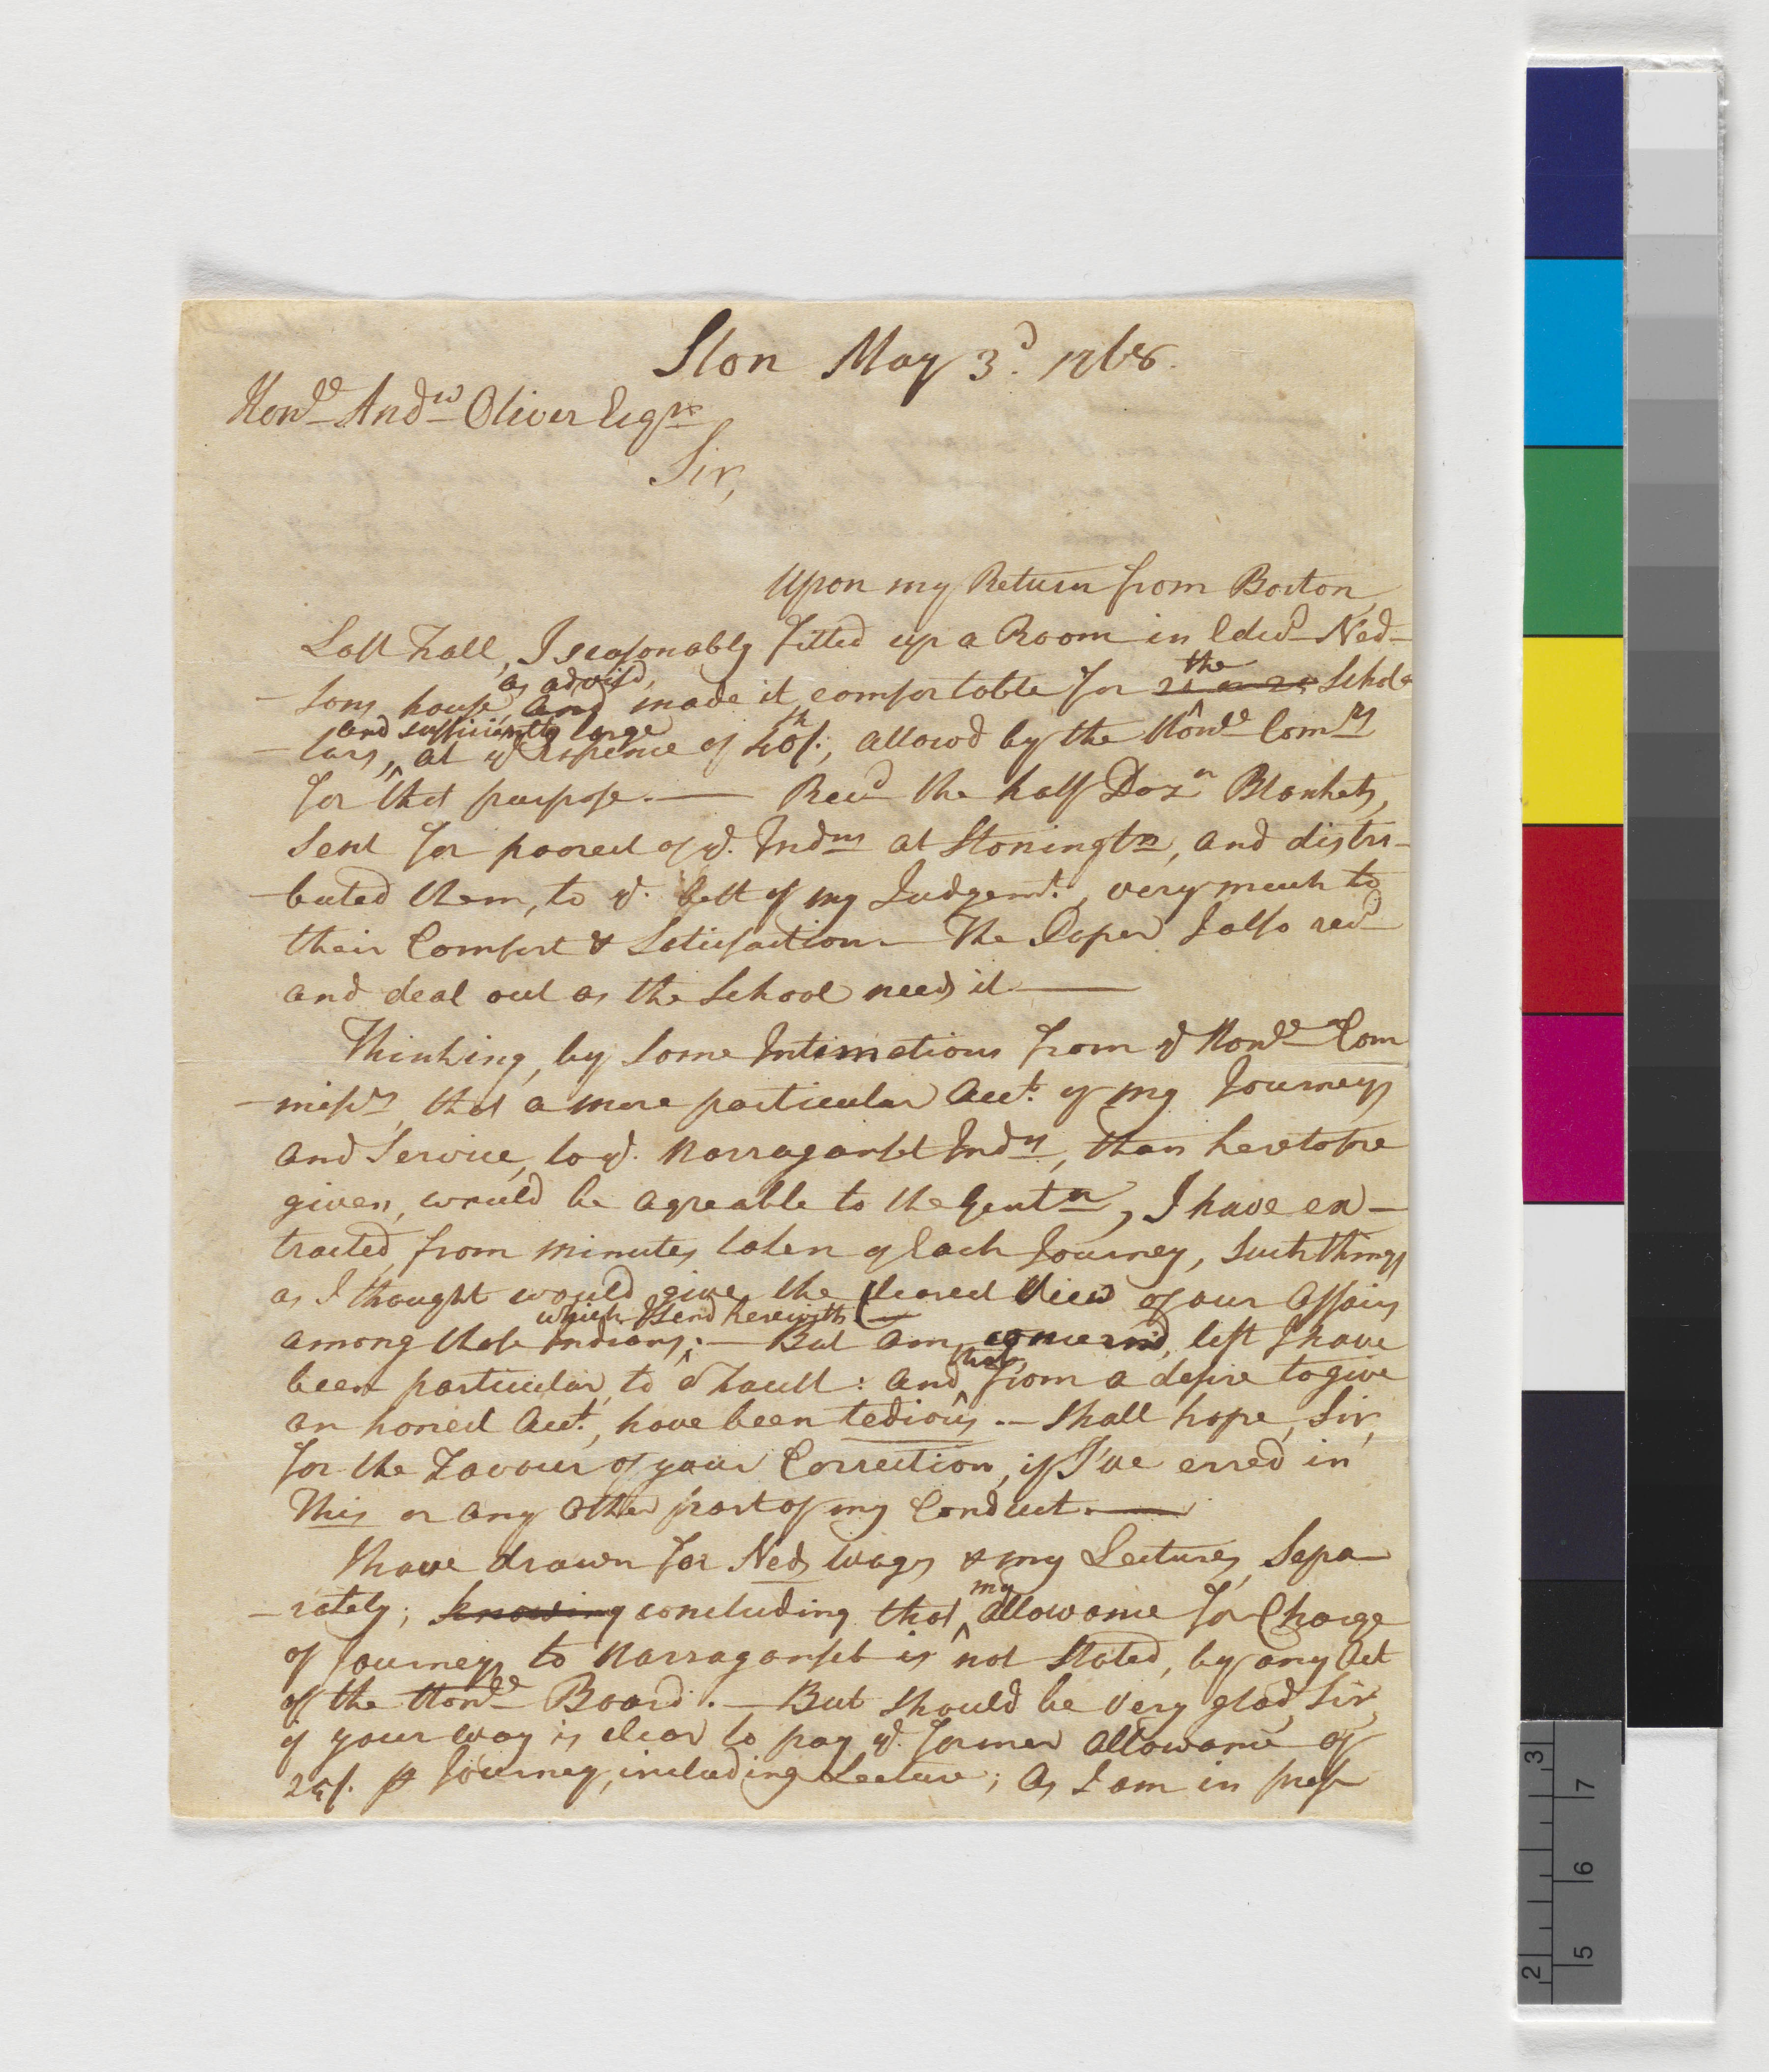 Ston May 3d. 1768.
Honle Andw Oliver Esqr
Sir,
Upon my Return from Boston,
Last Fall, I seasonably fitted up a Room in Edwd Ned-
as advisd, the
-sons house, and made it comfortable for Schol-
and sufficiently large
-lars, at ye Expence of 40/. allowd by the Honle Comrs
for that purpose. — Recd the half Dozn Blankets,
sent for poorest of ye. Indns at Stoningtn, and distri-
-buted them, to ye. best of my Judgemt., very much to
their Comfort & Satisfaction — The Paper I also recd
and deal out as the School needs it —
Thinking, by some Intimations from ye Honle Com
-missrs, that a more particular Acct. of my Journeys
and Service, to ye. Narraganset Inds, than heretofore
given, would be agreable to the Gentn, I have ex-
tracted, from minutes taken of each Journey, such things
as I thought would give the clearest View of our Affairs
which I send herewith
among those Indians; — But am concernd, lest I have
that,
been particular, to a Fault: and from a desire to give
an honest Acct., have been tedious. — Shall hope, Sir,
for the Favour of your Correction, if I've erred in
This or any other part of my Conduct. —
I have drawn for Neds Wages & my Lectures, Sepa-
my
-rately; knowing concluding that allowance for Charge
of Journeys to Narraganset is not Stated, by any Act
of the Honle Board. — But should be very glad, Sir,
if your way is clear to pay ye. former allowance of
25/. p Journey, including Lecture; as I am in press
3
2
7
6
5